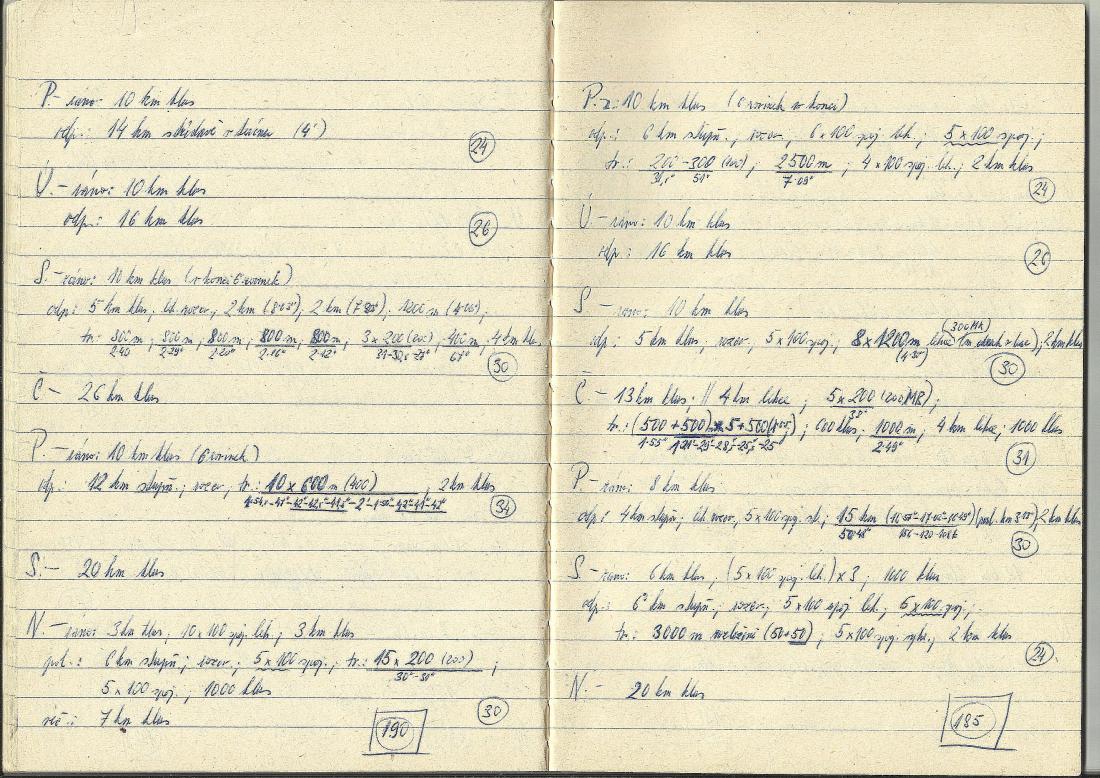 P. - ráno 10 km klus
odp.: 14 km střídavě v terénu (4')
24
Ú. - ráno: 10 km klus
odp.: 16 km klus
26
S. - ráno: 10 km klus (v konci 6 rovinek)
odp: 5 km klus, leh. rozcv., 2 km, 2 km, 1200 m;
tr.: 800 m; 800 m; 800 m; 800 m; 800 m; 3 x 200 (200); 400 m; 4 km klus
2:40 2:12" 67"
30
Č - 26 km klus
P. - ráno: 10 km klus (6 rovinek)
odp: 12 km stupň.; rozcv., tr.: 10 x 600 m (400); 2 km klus
34
S. - 20 km klus
N. - ráno: 3 km klus, 10 x 100 spoj. leh.; 3 km klus
pol.: 6 km stupň; rozcv.; 5 x 100 spoj.; tr.: 15 x 200 (200);
30" - 31"
5 x 100 spoj.; 1000 klus
več.: 7 km klus
30
190
P. r: 10 km klus (6 rovinek v konci)
odp.: 6 km stupň., rozcv., 6 x 100 spoj. leh.; 5 x 100 spoj.;
tr.: 200 - 300 (200); 2500 m; 4 x 100 spoj. leh.; 2 km klus
51" 7:09"
24
Ú - ráno: 10 km klus
odp.: 16 km klus
26
S - ráno: 10 km klus
(300 MK)
odp.: 5 km klus, rozcv, 5 x 100 spoj.; 8 x 1200 m; 2 km klus
30
Č - 13 km klus. // 4 km lehce; 5 x 200 (200 MK);
33"
tr.: (500 + 500) x 5 + 500; 600 klus; 1000 m, 4 km lehce; 1000 klus
1:55" 2:49"
31
P. - ráno: 8 km klus
odp.: 4 km stupň; leh. rozcv, 5 x 100 spoj.; 15 km; 2 km klus
50:48"
30
S - ráno: 6 km klus, (5 x 100 spoj. leh.) x 3; 1000 klus
odp.: 6 km stupň.; rozcv, 5 x 100 spoj. leh.; 6 x 100 spoj.;
tr.: 3000 m (50 + 50); 5 x 100 spoj.; 2 km klus
24
N. - 20 km klus
185